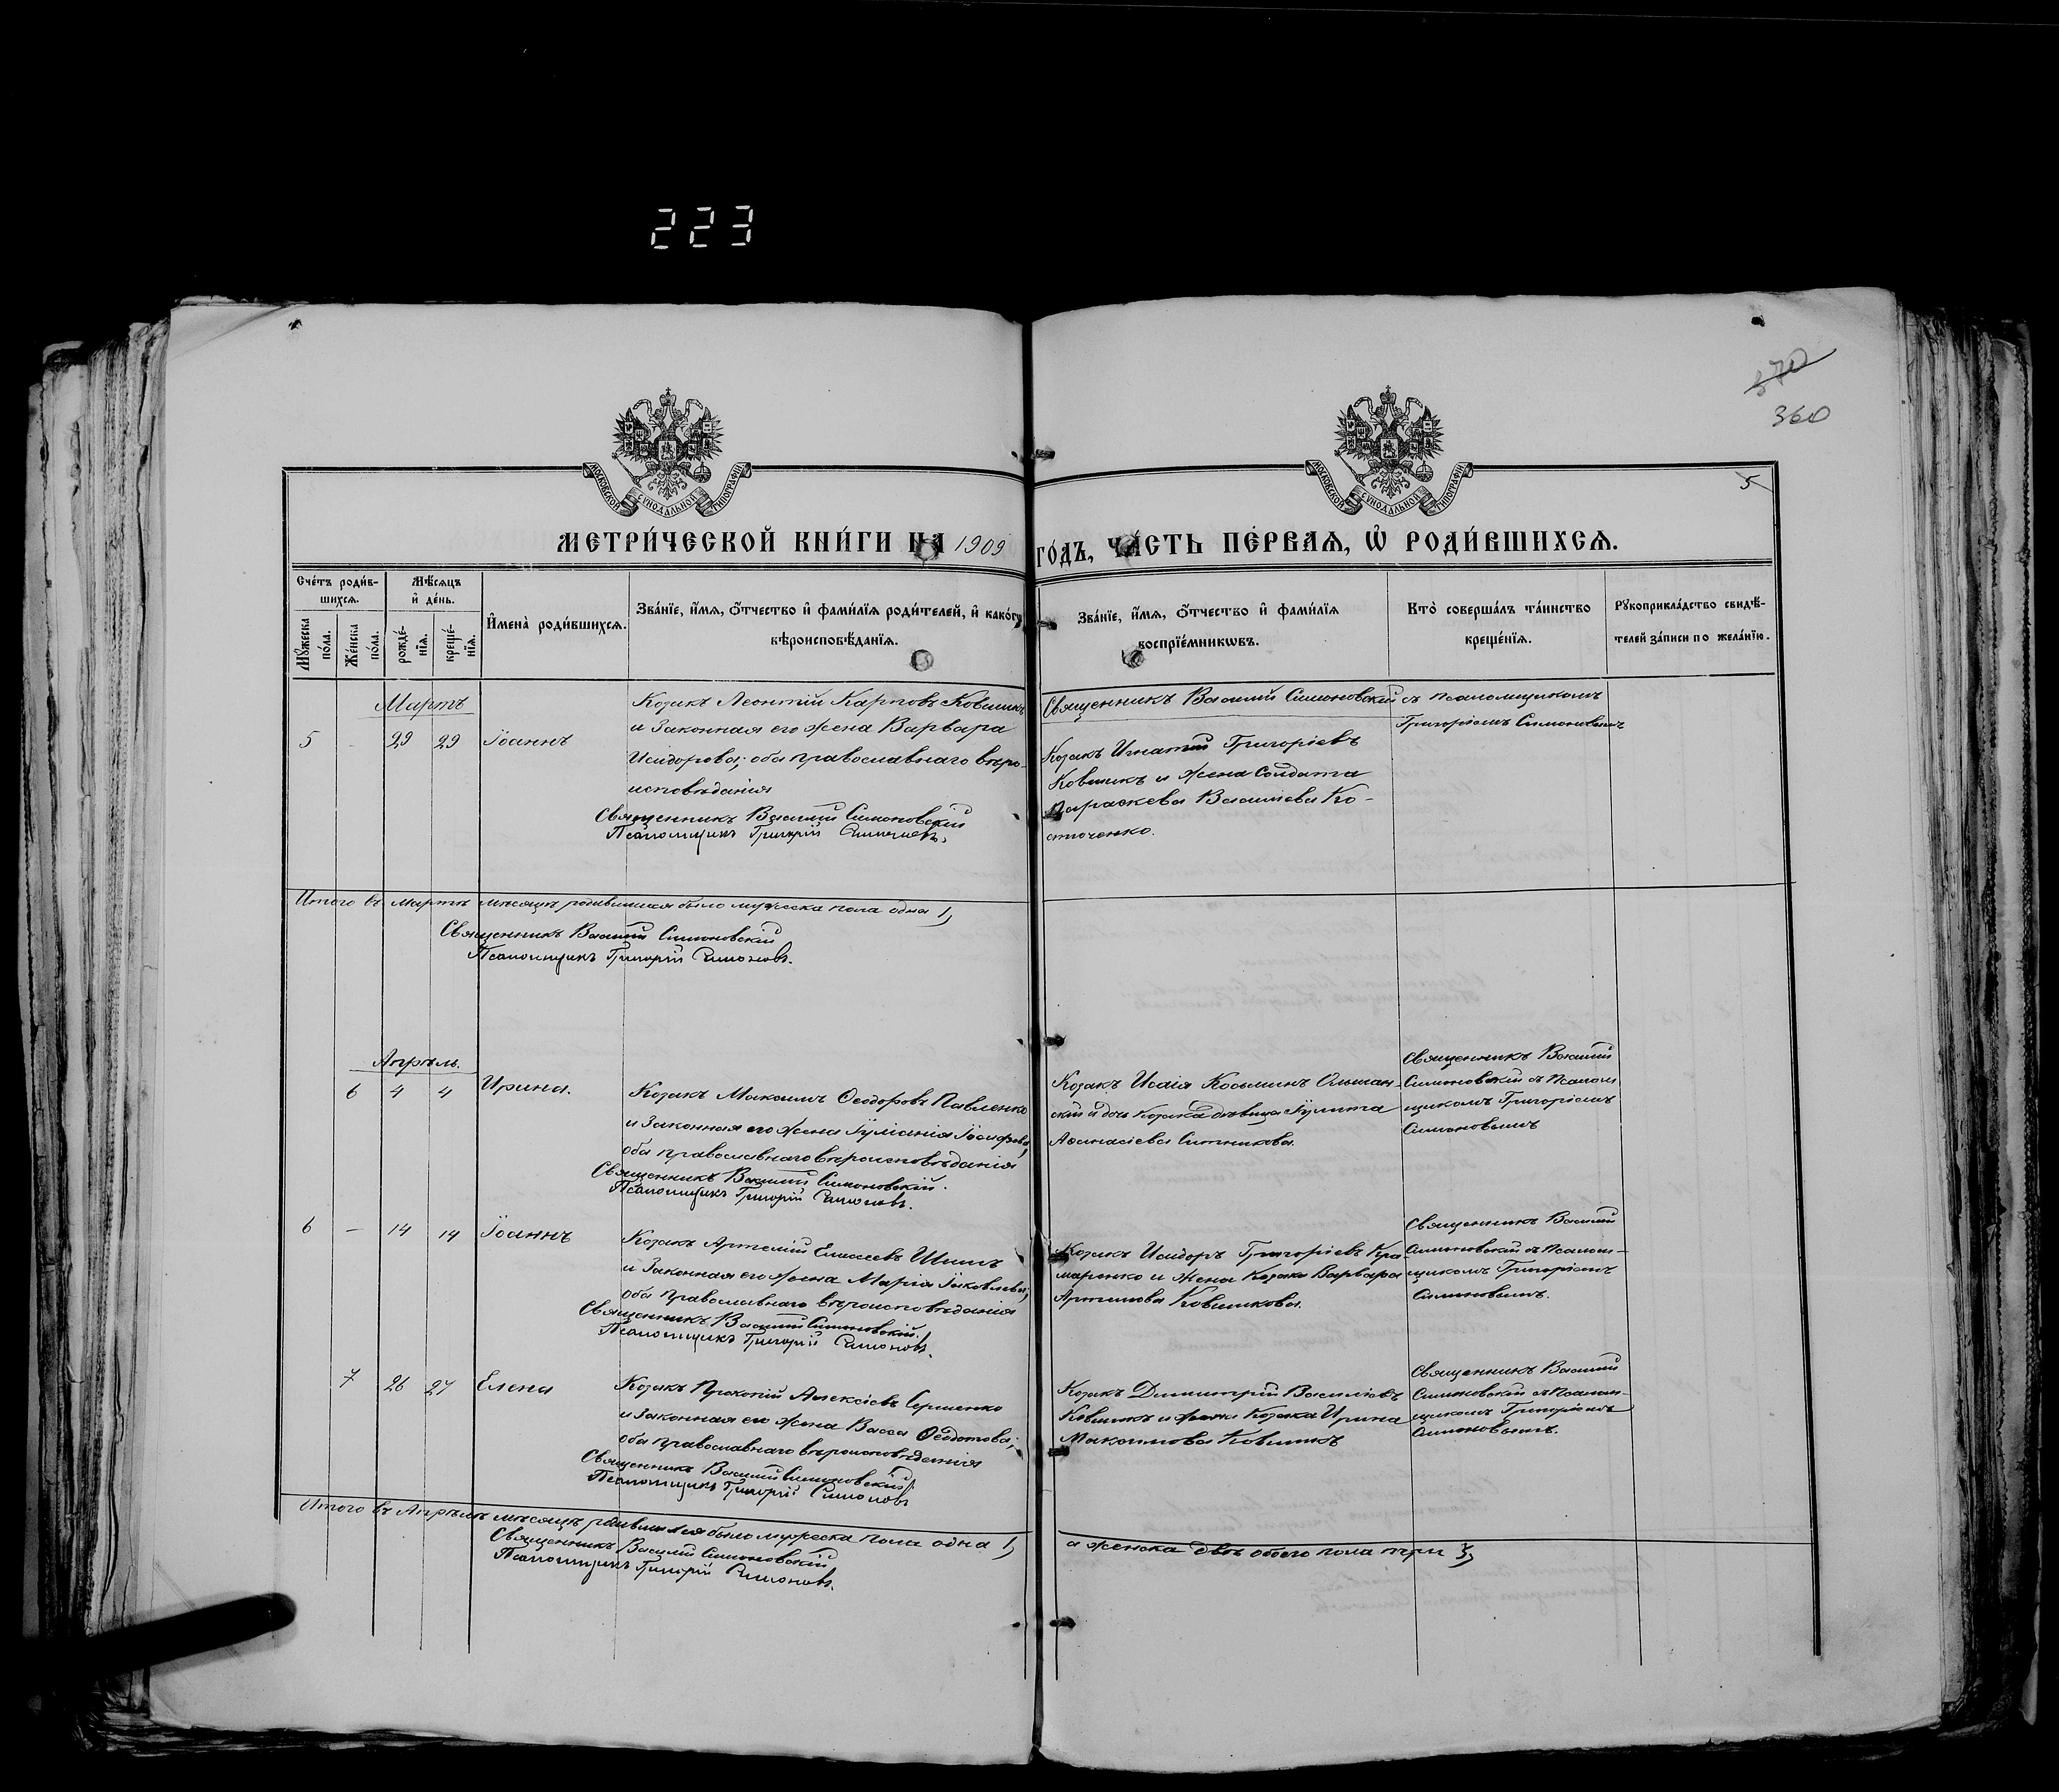 223
370
360
5
МОСКОВСКОЙ СУНОДАЛЬНОЙ ТИПОГРАФІИ
МОСКОВСКОЙ СУНОДАЛЬНОЙ ТИПОГРАФІИ
МЕТРИ́ЧЕСКОЙ КНИ́ГИ НА 1909 ГО́ДЪ, ЧА́СТЬ ПЕ́РВАѦ, Ѡ҆ РОДИ́ВШИХСѦ.
Сче́тъ роди́в-
шихсѧ.
Мѹ́жеска по́ла.
Же́нска по́ла.
Мѣ́сѧцъ
и҆ де́нь.
рожде́-нїѧ.
креще́-нїѧ.
И҆мена̀ роди́вшихсѧ.
Зва́нїе, и҆́мѧ, ѻ҆́тчество и҆ фами́лїѧ роди́телей, и҆ како́гѡ
вѣроисповѣ́данїѧ.
Зва́нїе, и҆́мѧ, ѻ҆́тчество и҆ фами́лїѧ
воспрїе́мникѡвъ.
Кто̀ соверша́лъ та́инство
креще́нїѧ.
Рѹкоприкла́дство свидѣ́-
телей за́писи по жела́нїю.
Мартъ
5 - 29 29 Іоаннъ
Козакъ Леонтій Карповъ Ковшикъ
и законная его жена Варвара
Исидорова; оба православнаго вѣро-
исповѣданія
Священникъ Василій Симоновскій
Псаломщикъ Григорій Симоновъ.
Козакъ Игнатій Григоріевъ
Ковшикъ и жена солдата
Параскева Василіева Ко-
сточенко.
Священникъ Василій Симоновскій съ псаломщикомъ
Григоріемъ Симоновымъ
Итого въ Мартѣ мѣсяцѣ родившихся было мужеска пола одна 1,
Священникъ Василій Симоновскій
Псаломщикъ Григорій Симоновъ.
Апрѣль.
6 4 4 Ирина.
Козакъ Максимъ Ѳеодоровъ Павленко
и законная его жена Іуліанія Іосифова,
оба православнаго вѣроисповѣданія
Священникъ Василій Симоновскій.
Псаломщикъ Григорій Симоновъ.
Козакъ Исаія Косьминъ Ольшан-
скій и дочь козака дѣвица Іулита
Аѳанасіева Ситникова.
Священникъ Василій
Симоновскій съ псалом
щикомъ Григоріемъ
Симоновымъ
6 — 14 14 Іоаннъ
Козакъ Артемій Елисеевъ Шишъ
и законная его жена Марія Іаковлева;
оба православнаго вѣроисповѣданія
Священникъ Василій Симоновскій.
Псаломщикъ Григорій Симоновъ.
Козакъ Исидоръ Григоріевъ Кра-
маренко и жена козака Варвара
Артемова Ковшикова.
Священникъ Василій
Симоновскій съ псалом-
щикомъ Григоріемъ
Симоновымъ.
7 26 27 Елена
Козакъ Прокопій Алексіевъ Сершенко
и законная его жена Васса Ѳеодотова;
оба православнаго вѣроисповѣданія
Священникъ Василій Симоновскій
Псаломщикъ Григорій Симоновъ
Козакъ Димитрій Василіевъ
Ковшикъ и жена козака Ирина
Максимова Ковшикъ
Священникъ Василій
Симоновскій съ псалом-
щикомъ Григоріемъ
Симоновымъ.
Итого въ Апрѣлѣ мѣсяцѣ родившихся было мужеска пола одна 1, а женска двѣ обоего пола три 3,
Священникъ Василій Симоновскій
Псаломщикъ Григорій Симоновъ.